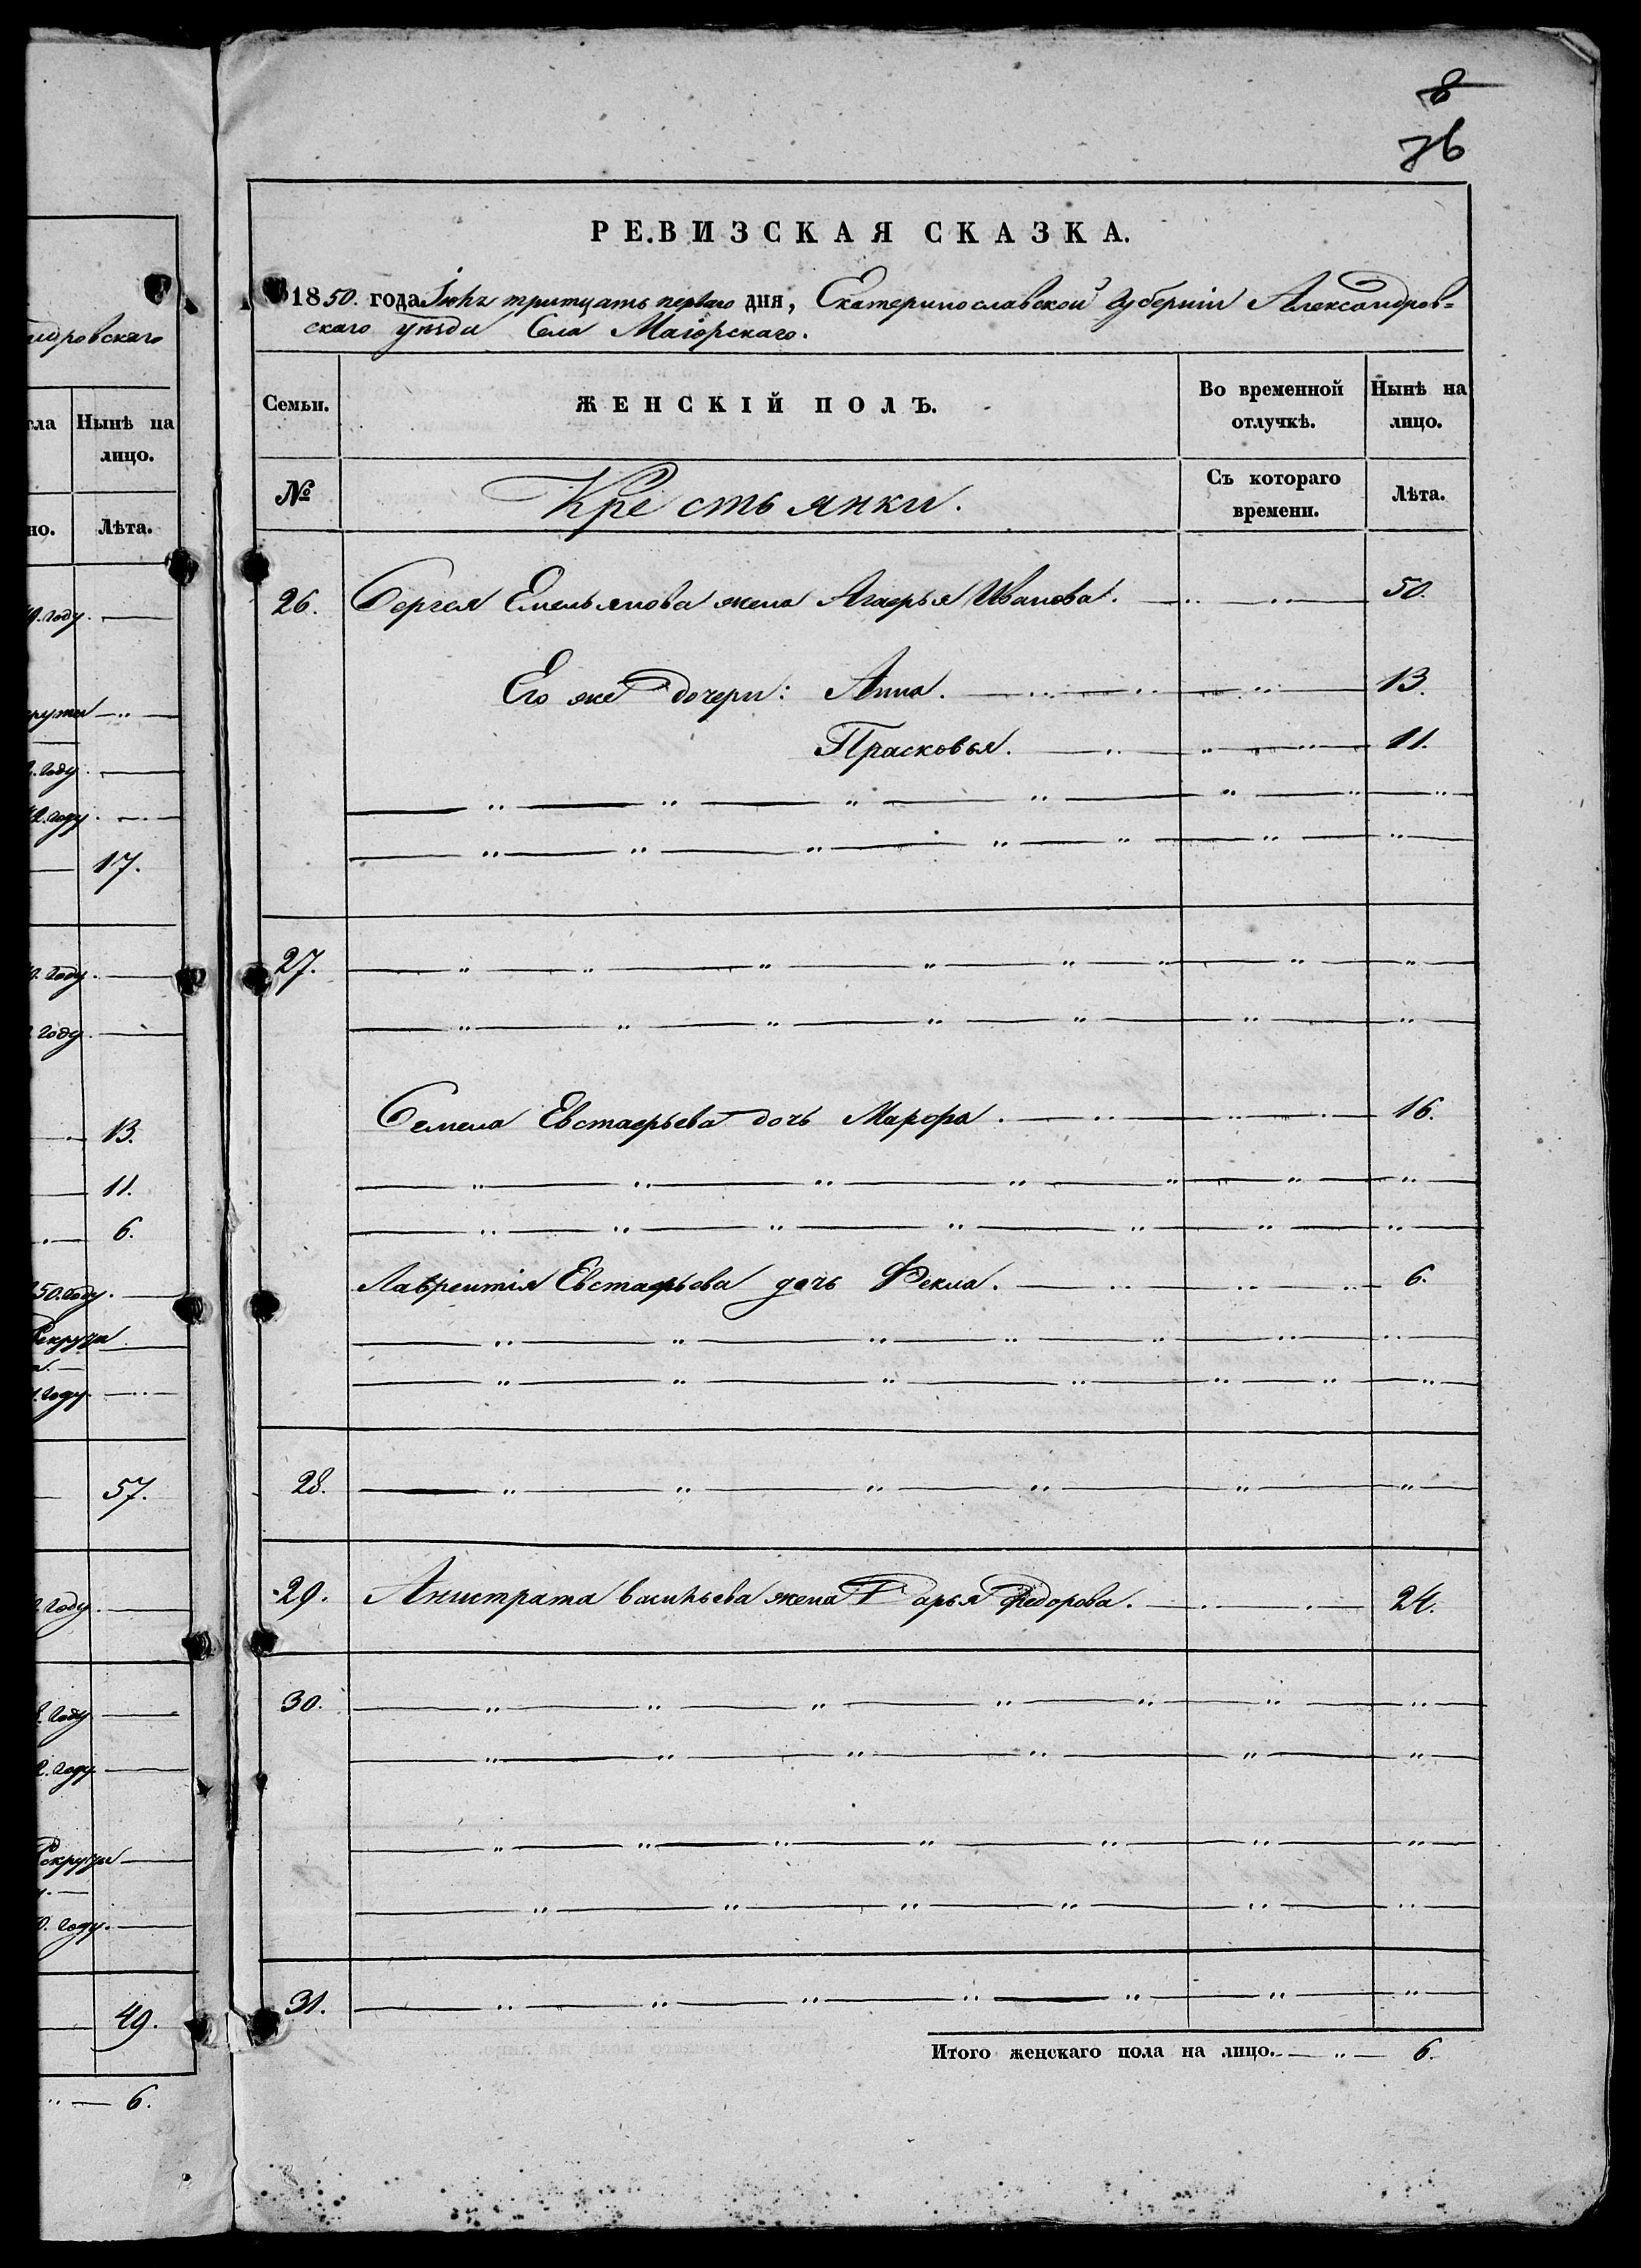 8
76
РЕ.ВИЗСКАЯ СКАЗКА.
1850. года Іюля тритцать перваго дня, Екатеринославской Губерніи Александров=
скаго уѣзда Села Маіорскаго.
Семьи.
ЖЕНСКІЙ ПОЛЪ.
Во временной
отлучкѣ.
Нынѣ на
лицо.
№
Крестьянки.
Съ котораго
времени.
Лѣта.
26. Сергея Емельянова жена Агафья Иванова. 50.
Его же дочери: Анна. 13.
Прасковья. 11.
27.
Семена Евстафьева дочь Марфа. 16.
Лаврентія Евстафьева дочь Фекла. 6.
28.
29. Анистрата Васильева жена Дарья Федорова. 24.
30.
31.
Итого женскаго пола на лицо. 6.
ндровскаго
Нынѣ на
лицо.
но. Лѣта.
году.
2. году.
42. году.
17.
году.
году.
13.
11.
6.
50. году.
Рекруты
году.
57.
году.
году
2. году.
Рекруты
0. году.
49.
6.